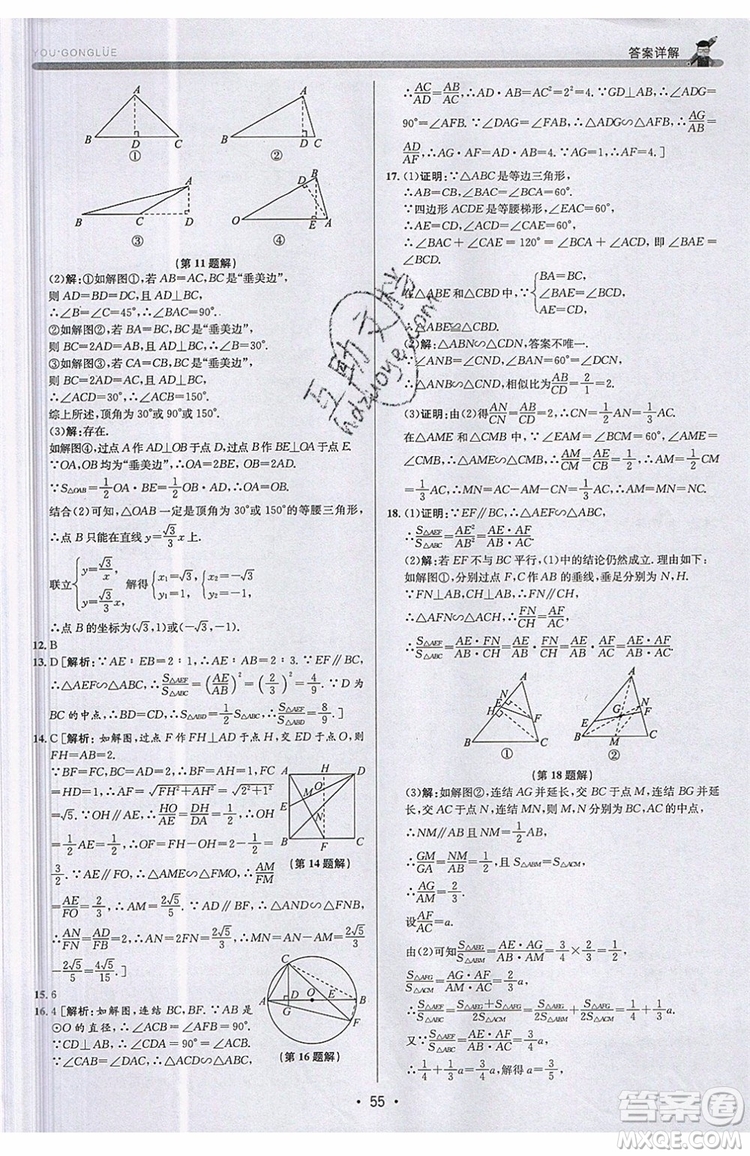 YOU·GONGLÜE
答案详解
A
B
D
C
①
A
B
D
C
②
A
B
C
D
③
B
D
O
E
A
④
(第 11 题解)
(2)解:①如解图①,若 AB=AC,BC是“垂美边”,
则 AD=BD=CD,且 AD⊥BC,
∴∠BAC=90°.
②如解图②,若 BA=BC,BC是“垂美边”,
则 BC=2AD=AB,且 AD⊥BC,
∴∠B=30°.
③如解图③,若 CA=CB,BC是“垂美边”,
则 BC=2AD=AC,且 AD⊥BD,
∴∠ACD=30°,
∴∠ACB=150°.
综上所述,顶角为 30°或 90°或 150°.
(3)解:存在.
如解图④,过点 A 作 AD⊥OB 于点 D,过点 B 作 BE⊥OA 于点 E.
∵OA,OB 均为“垂美边”,∴OA=2BE,OB=2AD.
∵S△OAB=1/2OA·BE=1/2OB·AD,∴OA=OB.
结合(2)可知,△OAB 一定是顶角为 30°或 150°的等腰三角形,
∴点 B 只能在直线 y=√3/3x 上.
联立{y=√3/x, y=√3/3x, 解得{x₁=√3, y₁=1, {x₂=-√3, y₂=-1,
∴点 B 的坐标为(√3,1)或(-√3,-1).
12. B
13. D [解析:∵AE∶EB=2∶1,∴AE∶AB=2∶3.∵EF∥BC,
∴△AEF∽△ABC,∴S△AEF/S△ABC=(AE/AB)²=(2/3)²=4/9.∵D 为
BC 的中点,∴S△ABD=1/2S△ABC,∴S△AEF/S△ABD=8/9.]
14. C [解析:如解图,过点 F 作 FH⊥AD 于点 H,交 ED 于点 O,则
FH=AB=2.
∵BF=FC,BC=AD=2,∴BF=AH=1,FC=HD=1,
∴AF=√(FH²+AH²)=√(2²+1²)=√5.
∵OH∥AE,∴HO/AE=DH/DA=1/2,∴OH=1/2AE
=1/2,∴OF=FH-OH=2-1/2=
3/2.∵AE∥FO,∴△AME∽△FMO,∴AM/FM=
AE/FO=2/3,∴AM=2/5AF=2√5/5.∵AD∥BF,
∴△AND∽△FNB,∴AN/FN=AD/BF
=2,∴AN=2FN=2√5/3,∴MN=AN-AM=2√5/3-
2√5/5=4√5/15.]
A
H
D
O
E
M
N
B
F
C
(第 14 题解)
15. 6
16. 4 [解析:如解图,连结 BC,BF.∵AB 是
⊙O 的直径,∴∠ACB=90°.∵CD⊥AB,
∴∠ADC=90°,∴∠ACB=∠ADC.
∵∠CAB=∠DAC,∴△ACB∽△ADC,
C
A
D
O
B
G
F
(第 16 题解)
∴AC/AD=AB/AC,∴AD·AB=AC²=2²=4.∵GD⊥AB,∴∠ADG=
90°=∠AFB.∵∠GAD=∠BAF,∴△ADG∽△AFB,∴AG/AB=
AD/AF,∴AG·AF=AD·AB=4.]
17. (1)证明:∵△ABC 是等边三角形,
∴AB=BC,∠BAC=∠BCA=60°.
∵四边形 ACDE 是等腰梯形,∠EAC=60°,
∴AE=CD,∠ACD=∠CAE=60°,
∴∠BAC+∠CAE=120°=∠BCA+∠ACD,即∠BAE=∠BCD.
在△ABE 和△CBD 中,∵{BA=BC, ∠BAE=∠BCD, AE=CD,
∴△ABE≌△CBD(SAS).
(2)解:△ABN∽△CDN,答案不唯一.
∵∠BAN=60°=∠DCN,∠ANB=∠CND,
∴△ANB∽△CND,相似比为AB/CD=2.
(3)证明:由(2)得AN/CN=AB/CD=2,∴CN=1/2AN=1/3AC.
在△AME 和△CMB 中,∵∠EAM=∠BCM,∠AME=
∠CMB,∴△AME∽△CMB,∴AM/CM=AE/CB=1/2,∴AM=
1/3AC,∴AM=MN=NC=1/3AC.
18. (1)证明:∵EF∥BC,∴△AEF∽△ABC,∴AE/AB=AF/AC,
∴S△AEF/S△ABC=AE²/AB²=AE·AF/AB·AC.
(2)解:若 EF 不与 BC 平行,(1)中的结论仍然成立.理由如下:
如解图①,分别过点 F,C 作 AB 的垂线,垂足分别为 N,H.
∵FN⊥AB,CH⊥AB,∴FN∥CH,
∴△AFN∽△ACH,∴FN/CH=AF/AC,
∴S△AEF/S△ABC=1/2AE·FN/1/2AB·CH=AE·AF/AB·AC.
A
N
E
H
F
B
C
①
A
N
E
G
F
B
M
C
②
(第 18 题解)
(3)解:如解图②,连结 AG 并延长,交 BC 于点 M,连结 BG 并延长,
交 AC 于点 N,连结 MN,则 MN 分别为 BC,AC 的中点,
∴NM∥AB,且 NM=1/2AB,
∴GM/GA=GN/GB=1/2,且S△ABM=S△ACM,
∴AG/AM=2/3.
设AF/AC=a.
由(2)可知S△AEG/S△ABM=AE·AG/AB·AM=3/4×2/3=1/2,S△AFG/S△ACM=AG·AF/AM·AC=2/3a,
∴S△AEF/S△ABC=S△AEG+S△AFG/2S△ACM=S△AEG/2S△ABM+S△AFG/2S△ACM=1/4+1/3a.
又∵S△AEF/S△ABC=AE·AF/AB·AC=3/4a,∴1/4+1/3a=3/4a,解得 a=3/5,
∴S△AEF/S△ABC=3/4×3/5=9/20.
· 55 ·
互助文档
hdzuoye.com
答案圈
MXQE.COM